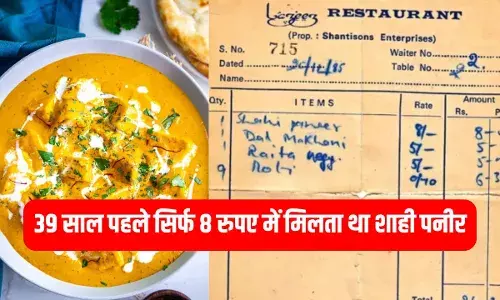 Lazeez RESTAURANT
(Prop : Shantisons Enterprises)
S. No. 715
Waiter No.
Dated 20/12/85
Table No. 2
Name
Qty. ITEMS Rate Amount
Rs. P
1 Shahi paneer 8/- 8-
1 Dal Makhani 5/- 5-
1 Raita 5/- 5-
9 Roti 0/70 6-3
39 साल पहले सिर्फ 8 रुपए में मिलता था शाही पनीर
Total